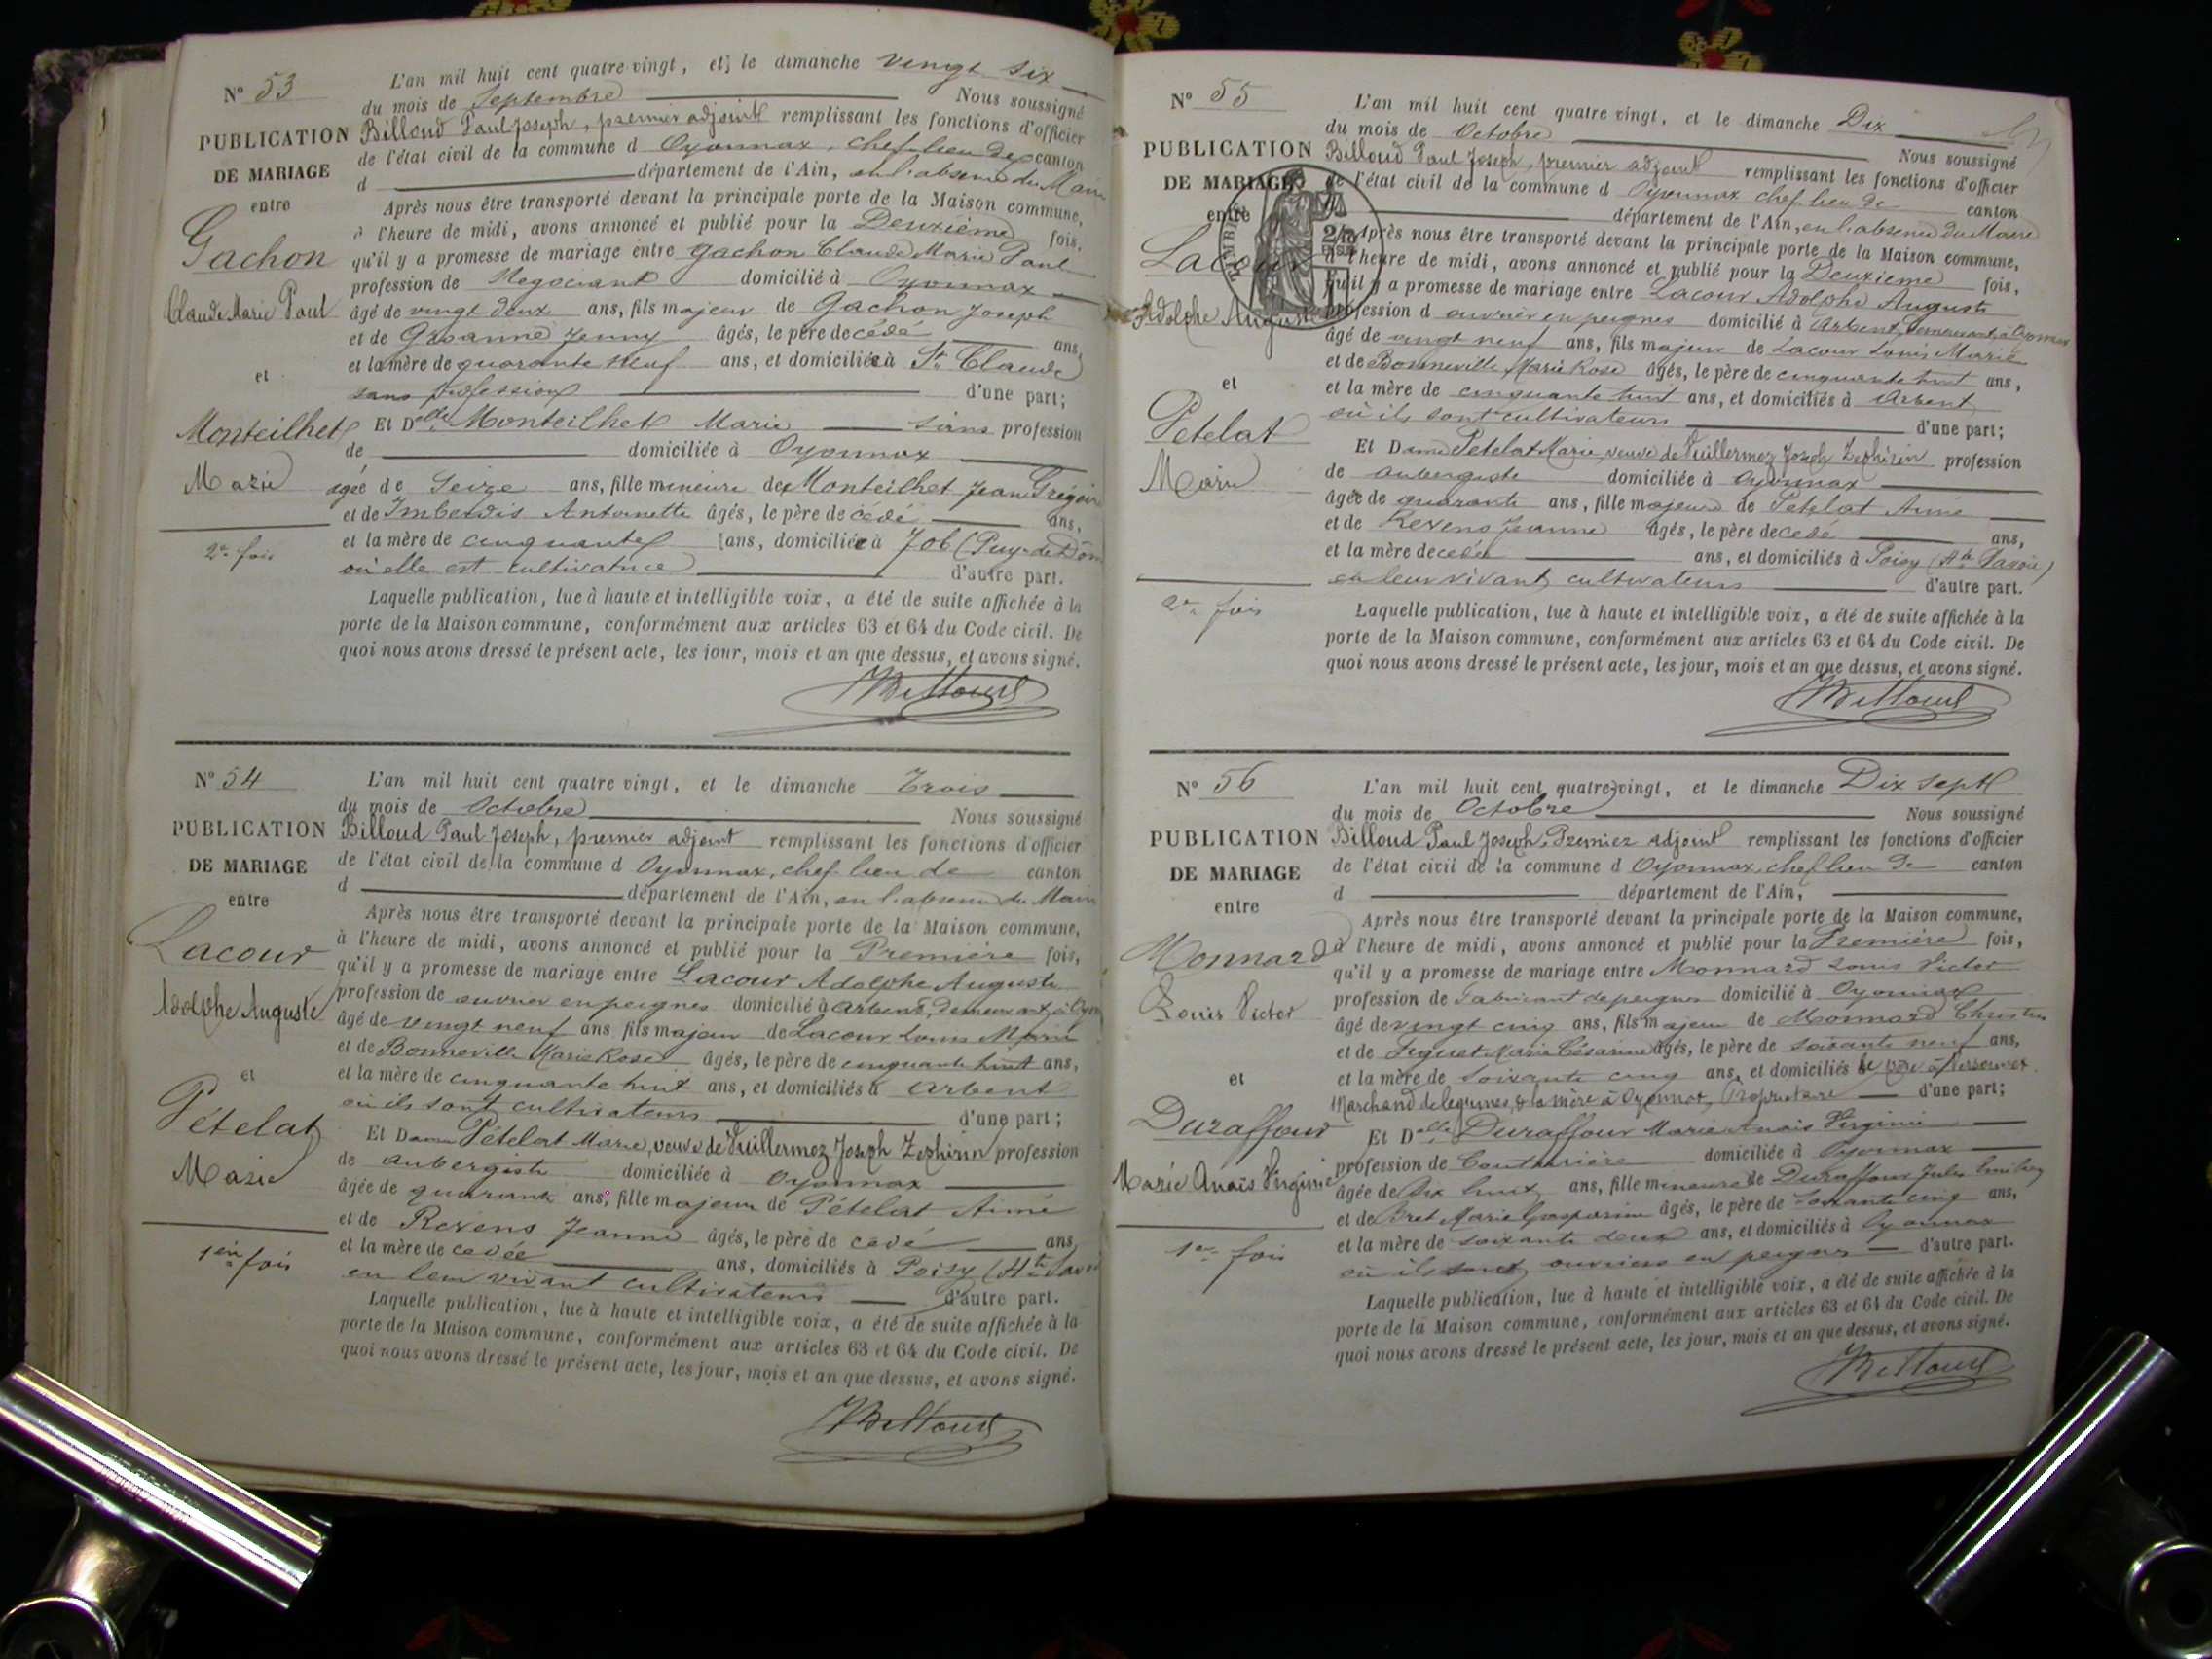 N° 53
PUBLICATION
DE MARIAGE
entre
Gachon
Claude Marie Paul
et
Monteilhet
Marie
2e fois
L'an mil huit cent quatre-vingt, et le dimanche vingt six
du mois de Septembre Nous soussigné
Billoud Paul Joseph, premier adjoint remplissant les fonctions d'officier
de l'état civil de la commune d Oyonnax, chef lieu de canton
d département de l'Ain, en l'absence du Maire
Après nous être transporté devant la principale porte de la Maison commune,
à l'heure de midi, avons annoncé et publié pour la Deuxième fois,
qu'il y a promesse de mariage entre Gachon Claude Marie Paul
profession de Negociant domicilié à Oyonnax
âgé de vingt deux ans, fils majeur de Gachon Joseph
et de Jenny âgés, le père de cédé ans,
et la mère de quarante neuf ans, et domiciliée à St Claude
sans profession d'une part;
Et Delle Monteilhet Marie sans profession
de domiciliée à Oyonnax
âgée de Seize ans, fille mineure de Monteilhet Jean Grégoire
et de Imberdis Antoinette âgés, le père de cédé ans,
et la mère de cinquante ans, domiciliée à Job (Puy-de-Dôm
où elle est cultivatrice d'autre part.
Laquelle publication, lue à haute et intelligible voix, a été de suite affichée à la
porte de la Maison commune, conformément aux articles 63 et 64 du Code civil. De
quoi nous avons dressé le présent acte, les jour, mois et an que dessus, et avons signé.
Billoud
N° 54
PUBLICATION
DE MARIAGE
entre
Lacour
Adolphe Auguste
et
Pételat
Marie
1ère fois
L'an mil huit cent quatre vingt, et le dimanche Trois
du mois de Octobre Nous soussigné
Billoud Paul Joseph, premier adjoint remplissant les fonctions d'officier
de l'état civil de la commune d Oyonnax, chef lieu de canton
d département de l'Ain, en l'absence du Maire
Après nous être transporté devant la principale porte de la Maison commune,
à l'heure de midi, avons annoncé et publié pour la Première fois,
qu'il y a promesse de mariage entre Lacour Adolphe Auguste
profession de ouvrier en peignes domicilié à Arbent, demeurant à Oyon
âgé de vingt neuf ans fils majeur de Lacour Louis Marie
et de Bonneville Marie Rose âgés, le père de cinquante huit ans,
et la mère de cinquante huit ans, et domiciliés à Arbent
où ils sont cultivateurs d'une part;
Et Dame Pételat Marie, veuve de Vuillermoz Joseph Zephirin profession
de aubergiste domiciliée à Oyonnax
âgée de quarante ans, fille majeure de Pételat Aimé
et de Revens Jeanne âgés, le père de cedé ans,
et la mère de cedée ans, domiciliés à Poisy (Hte Savoi
en leur vivant cultivateurs d'autre part.
Laquelle publication, lue à haute et intelligible voix, a été de suite affichée à la
porte de la Maison commune, conformément aux articles 63 et 64 du Code civil. De
quoi nous avons dressé le présent acte, les jour, mois et an que dessus, et avons signé.
Billoud
N° 55
PUBLICATION
DE MARIAGE
entre
Lacour
Adolphe Auguste
et
Pételat
Marie
2e fois
L'an mil huit cent quatre vingt, et le dimanche Dix
du mois de Octobre Nous soussigné
Billoud Paul Joseph, premier adjoint remplissant les fonctions d'officier
de l'état civil de la commune d Oyonnax chef lieu de canton
département de l'Ain, en l'absence du Maire
Après nous être transporté devant la principale porte de la Maison commune,
à l'heure de midi, avons annoncé et publié pour la Deuxieme fois,
qu'il y a promesse de mariage entre Lacour Adolphe Auguste
profession d ouvrier en peignes domicilié à Arbent, demeurant à Oyonnax
âgé de vingt neuf ans, fils majeur de Lacour Louis Marie
et de Bonneville Marie Rose âgés, le père de cinquante huit ans,
et la mère de cinquante huit ans, et domiciliés à Arbent
où ils sont cultivateurs d'une part;
Et Dame Petelat Marie, veuve de Vuillermoz Joseph Zephirin profession
de aubergiste domiciliée à Oyonnax
âgée de quarante ans, fille majeure de Petelat Aimé
et de Revens Jeanne âgés, le père de cedé ans,
et la mère decedée ans, et domiciliés à Poisy (Hte Savoie)
en leur vivant cultivateurs d'autre part.
Laquelle publication, lue à haute et intelligible voix, a été de suite affichée à la
porte de la Maison commune, conformément aux articles 63 et 64 du Code civil. De
quoi nous avons dressé le présent acte, les jour, mois et an que dessus, et avons signé.
Billoud
N° 56
PUBLICATION
DE MARIAGE
entre
Monnard
Louis Victor
et
Duraffour
Marie Anaïs Virginie
1ere fois
L'an mil huit cent quatre vingt, et le dimanche Dix sept
du mois de Octobre Nous soussigné
Billoud Paul Joseph, Premier adjoint remplissant les fonctions d'officier
de l'état civil de la commune d Oyonnax, chef lieu de canton
d département de l'Ain,
Après nous être transporté devant la principale porte de la Maison commune,
à l'heure de midi, avons annoncé et publié pour la Première fois,
qu'il y a promesse de mariage entre Monnard Louis Victor
profession de Fabricant de peignes domicilié à Oyonnax
âgé de vingt cinq ans, fils majeur de Monnard Christin
et de Marie Césarine âgés, le père de soixante neuf ans,
et la mère de soixante cinq ans, et domiciliés le père à
Marchand de legumes, & la mère à Oyonnax, Propriétaire d'une part;
Et Delle Duraffour Marie Anaïs Virginie
profession de Couturière domiciliée à Oyonnax
âgée de Dix huit ans, fille mineure de Duraffour Jules
et de Bret Marie Gasparine âgés, le père de soixante cinq ans,
et la mère de soixante deux ans, et domiciliés à Oyonnax
où ils sont ouvriers en peignes d'autre part.
Laquelle publication, lue à haute et intelligible voix, a été de suite affichée à la
porte de la Maison commune, conformément aux articles 63 et 64 du Code civil. De
quoi nous avons dressé le présent acte, les jour, mois et an que dessus, et avons signé.
Billoud